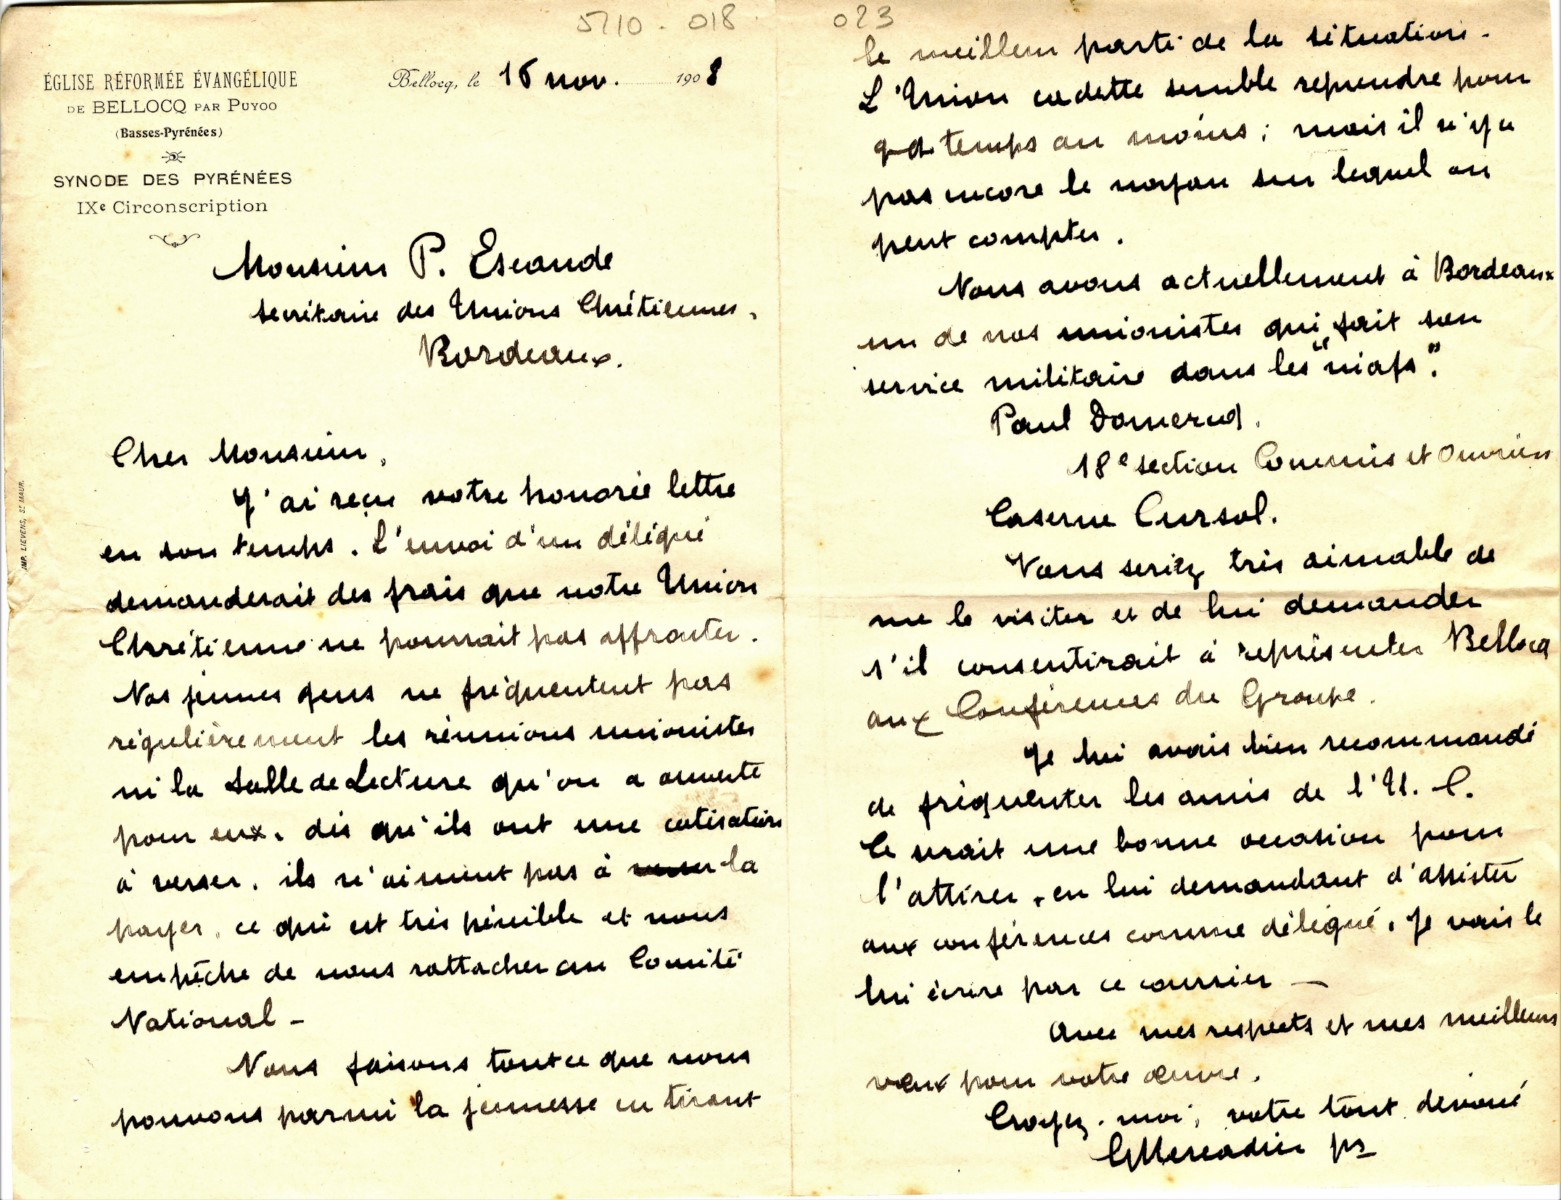 5710 - 018
ÉGLISE RÉFORMÉE ÉVANGÉLIQUE
DE BELLOCQ PAR PUYOO
(Basses-Pyrénées)
SYNODE DES PYRÉNÉES
IXe Circonscription
Bellocq, le 16 nov. 1908
Monsieur P. Escande
secrétaire des Unions Chrétiennes,
Bordeaux.
Cher Monsieur,
J'ai reçu votre honorée lettre
en son temps. L'envoi d'un délégué
demanderait des frais que notre Union
Chrétienne ne pourrait pas affronter.
Nos jeunes gens ne fréquentent pas
régulièrement les réunions unionistes
ni la Salle de Lecture qu'on a ouverte
pour eux. dès qu'ils ont une cotisation
à verser, ils n'aiment pas à la
payer, ce qui est très pénible et nous
empêche de nous rattacher au Comité
National -
Nous faisons tout ce que nous
pouvons parmi la jeunesse en tirant
IMP. LIEVENS, ST MAUR.
023
le meilleur parti de la situation.
L'Union cadette semble reprendre pour
qq temps au moins ; mais il n'y a
pas encore le noyau sur lequel on
peut compter.
Nous avons actuellement à Bordeaux
un de nos unionistes qui fait son
service militaire dans les "riafs".
Paul Domercq.
18e section Commis et Ouvriers
Caserne Cursol.
Vous seriez très aimable de
me le visiter et de lui demander
s'il consentirait à représenter Bellocq
aux Conférences du Groupe.
Je lui avais bien recommandé
de fréquenter les amis de l'U. C.
Ce serait une bonne occasion pour
l'attirer, en lui demandant d'assister
aux conférences comme délégué. Je vais le
lui écrire par ce courrier -
Avec mes respects et mes meilleurs
vœux pour votre œuvre.
Croyez-moi, votre tout dévoué
GMercadier ps